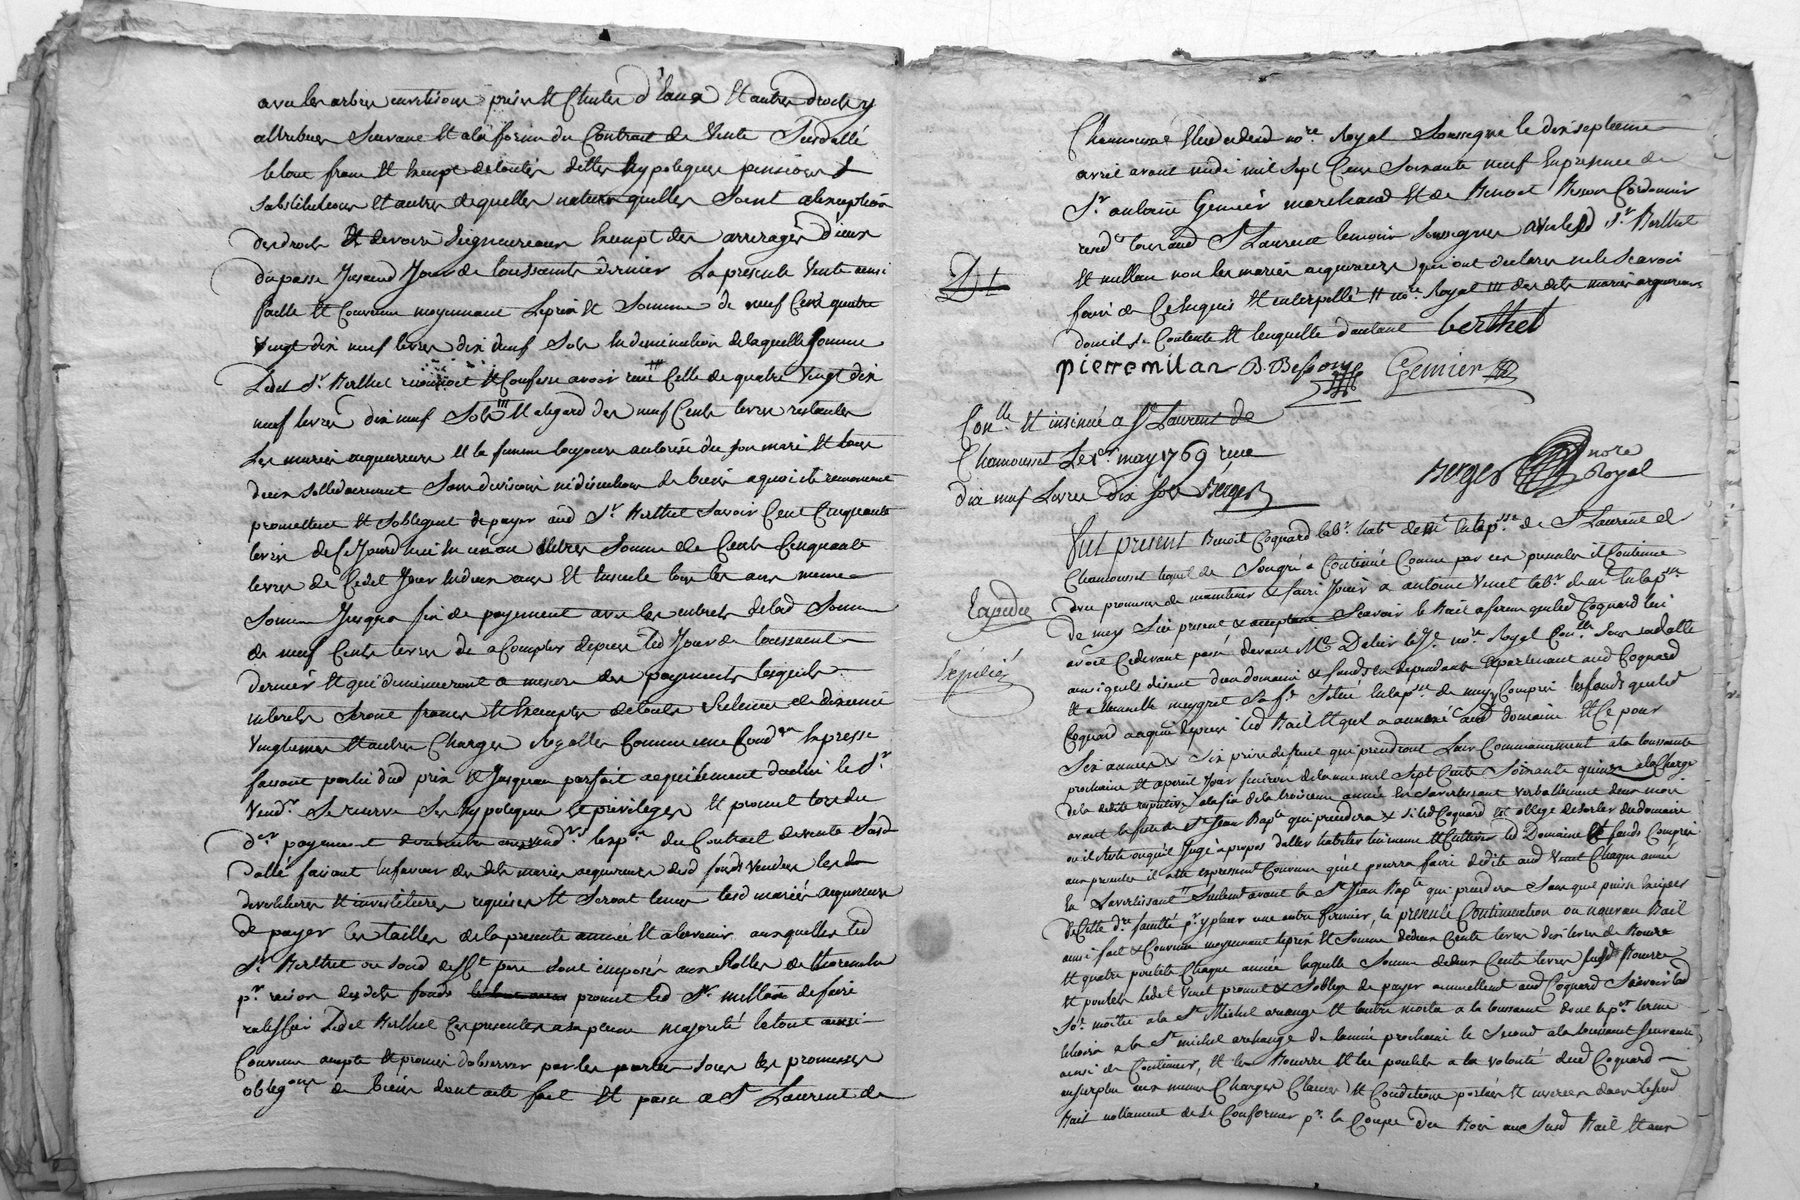 avec les arbres envelisons prises et chutes d'eaux et autres droits y
attribues suivant et a la forme du Contrat de Vente susdatté
le tout franc et exempt de toutes dettes hypoteques pensions &
substitutions et autres dequelles natures quelles soint alexception
des droits et devoirs seigneuriaux exempt des arrerages d'iceux
du passé jusqu'au Jour de toussaints dernier La presente Vente ainsi
faitte et convenue moyennant le prix et somme de neuf Cent quatre
Vingt dix neuf livres dix neuf sols en diminution de laquelle somme
Ledt Sr Berthet reconnoit et Confesse avoir receu Celle de quatre Vingt dix
neuf livres dix neuf sols et a legard des neuf Cents livres restantes
Les maries acquereurs et la femme toujours autorisée du son mari et tous
deux sollidairement sans division ni discution de biens a quoi ils renoncent
promettent et soblegent de payer aud Sr Berthet savoir Cent Cinquante
livres de ce Jourd'hui en un an autres somme de Cents Cinquante
livres de Cedt Jour en deux ans et ensuite tous les ans meme
somme jusqu'a fin de payement avec les interets de lad somme
de neuf Cents livres de a Compter depuis led Jour de toussaint
dernier et qui diminueront a mesure des payments lesquels
interets seront francs et exempts de toutes retenue de dixieme
Vingtiemes et autres Charges Royalles Comme une Condon expresse
faisant partie dud prix et jusquau parfait acquittement dicelui le Sr
Vendr se reserve ses hypoteques et privileges et promet lors du
der payement
datté faisant en faveur des dits maries acquereurs desd fonds vendus les
devetitures et investitures requises et seront tenus lesd mariés acquereurs
de payer les tailles de la presente année et a lavenir auxquelles led
Sr Berthet ou sond defft pere sont imposés aux Rolles de
pr raison desdits fonds promet led Sr millan de faire
ratiffier Ledt Berthet Ces presentes a sa pleine majorité le tout ainsi
Convenu accepté et promis d'observer par les parties sous les promesses
obligons de biens dont acte fait et passé a St Laurent de
Chamousset Etude dud nore Royal soussigné le dix septieme
avril avant midi mil sept Cens soixante neuf En presence de
Sr antoine Genier marchand et de Benoit Besson Cordonnier
resdts tous aud St Laurent temoins soussignes avec led Sr Berthet
et millan non les mariés acquereurs qui ont declares ne le scavoir
faire de ce enquis et interpellé et nore Royal des dits mariés acquereurs
dont il se contente et lesquitte d'autant berthet
pierre milan B. Besson Genier
Conlle et insinué a St Laurent de
Chamousset Le 1er may 1769 receu
dix neuf Livres dix sols Berger
Berger nore
Royal
Fut present Benoit Coquard labr habt demt en la psse de St Laurent de
Chamousset lequel de son gré a Continué Comme par ces presentes il Continue
avec promesse de maintenir & faire jouir a antoine Venet labr demt en la psse
Expediée
de meys Sici present & acceptant scavoir le Bail a ferme que led Coquard lui
avoit cy devant passé devant Me Delir le Je nore Royal Conlle sous sadatte
Expedié
Coquard acquis depuis led Bail et qu'il a annexé aud domaine et Ce pour
Six années & six prises de fruit qui prendront Leur Commancement a la toussaints
prochaine et a pareil Jour finiront de lannée mil Sept Cents Soixante quinze a la Charge
de la dedite respective a la fin de la troisieme année En savertissant verballement deux mois
avant la fete de St Jean Bapte qui precedera & Si led Coquard est obligé de sortir du domaine
ou il reste ou quil juge apropos d'aller habiter lui meme et Cultiver led Domaine et fonds Compris
aux presentes il est expressement Convenu quil pourra faire dedite aud Venet Chaque année
en lavertissant seulement avant la St Jean Bapte qui precedera sans que puisse exciper
de Cette dre faculté pr y placer une autre fermier, la presente Continuation ou nouveau Bail
ainsi fait & Convenu moyennant le prix et Somme de deux Cents livres dix livres de Beurre
et quatre poulets Chaque année laquelle Somme de deux Cents livres susd Beurre
et poulets Ledt Venet promet & soblige de payer annuellement aud Coquard Scavoir lad
Soe moitié a la St Michel archange et l'autre moitié a la toussaint dont le per terme
echoira a la St michel archange de lannée prochaine le Second a la toussaint suivante
ainsi de Continuer, et les Beurre et les poulets a la volonté dud Coquard
au surplus aux memes Charges Clauses et Conditions portées et inserées dans le susd
Bail nottament de se Conformer pr la Coupe des Bois aux Susd Bail et aux